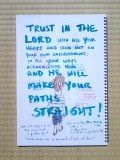 TRUST IN THE
LORD WITH ALL YOUR
HEART AND LEAN NOT ON
YOUR OWN UNDERSTANDING;
IN ALL YOUR WAYS
ACKNOWLEDGE HIM,
AND HE WILL
MAKE YOUR
PATHS
STRAIGHT!